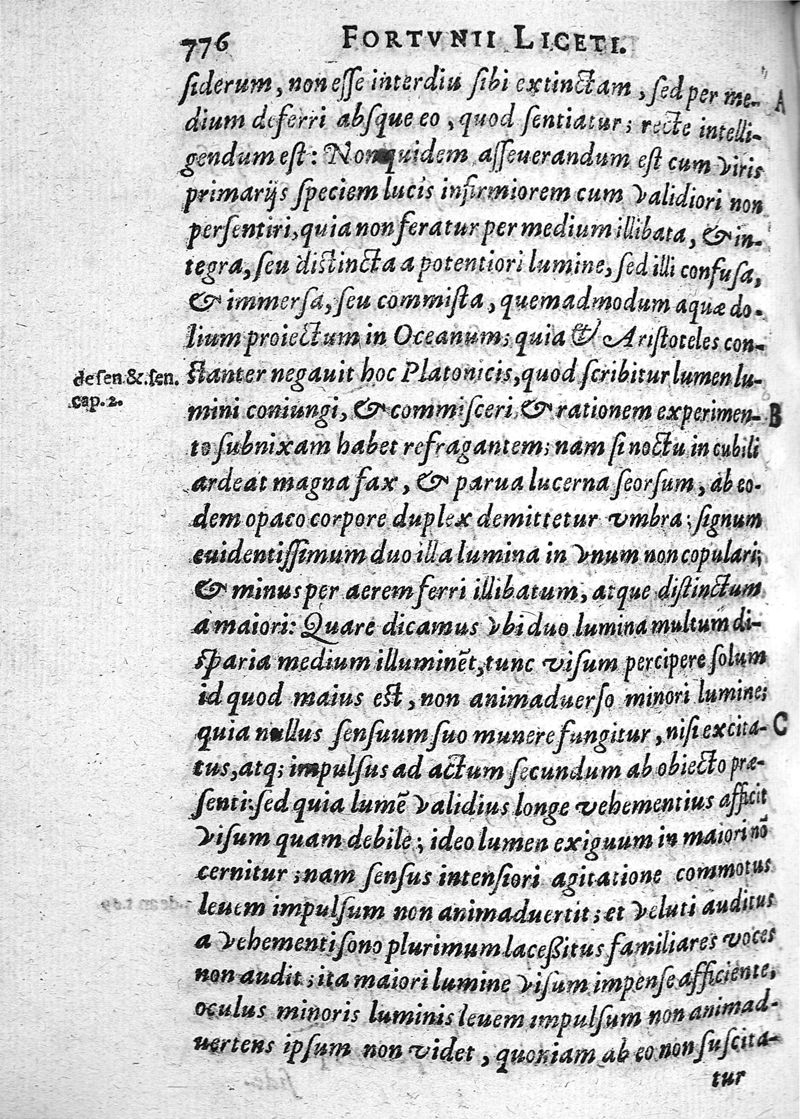 776 FORTVNII LICETI.
siderum, non esse interdiu sibi extinctam, sed per me-
dium deferri absque eo, quod sentiatur; recte intelli-
gendum est: Non quidem asseuerandum est cum viris
primarijs speciem lucis infirmiorem cum validiori non
persentiri, quia non feratur per medium illibata, & in-
tegra, seu distincta a potentiori lumine, sed illi confusa,
& immersa, seu commista, quemadmodum aquæ do-
lium proiectum in Oceanum; quia & Aristoteles con-
de sen. & sen.
cap. 2.
stanter negauit hoc Platonicis, quod scribitur lumen lu-
mini coniungi, & commisceri, & rationem experimen-
to subnixam habet refragantem; nam si noctu in cubili
ardeat magna fax, & parua lucerna seorsum, ab eo-
dem opaco corpore duplex demittetur vmbra; signum
euidentissimum duo illa lumina in vnum non copulari;
& minus per aerem ferri illibatum, atque distinctum
a maiori: Quare dicamus vbi duo lumina multum di-
sparia medium illuminēt, tunc visum percipere solum
id quod maius est, non animaduerso minori lumine;
quia nullus sensuum suo munere fungitur, nisi excita-
tus, atq; impulsus ad actum secundum ab obiecto præ-
senti: sed quia lumē validius longe vehementius afficit
visum quam debile; ideo lumen exiguum in maiori nō
cernitur; nam sensus intensiori agitatione commotus
leuem impulsum non animaduertit; et veluti auditus
a vehementi sono plurimum lacessitus familiares voces
non audit; ita maiori lumine visum impense afficiente,
oculus minoris luminis leuem impulsum non animad-
uertens ipsum non videt, quoniam ab eo non suscita-
tur
A
B
C